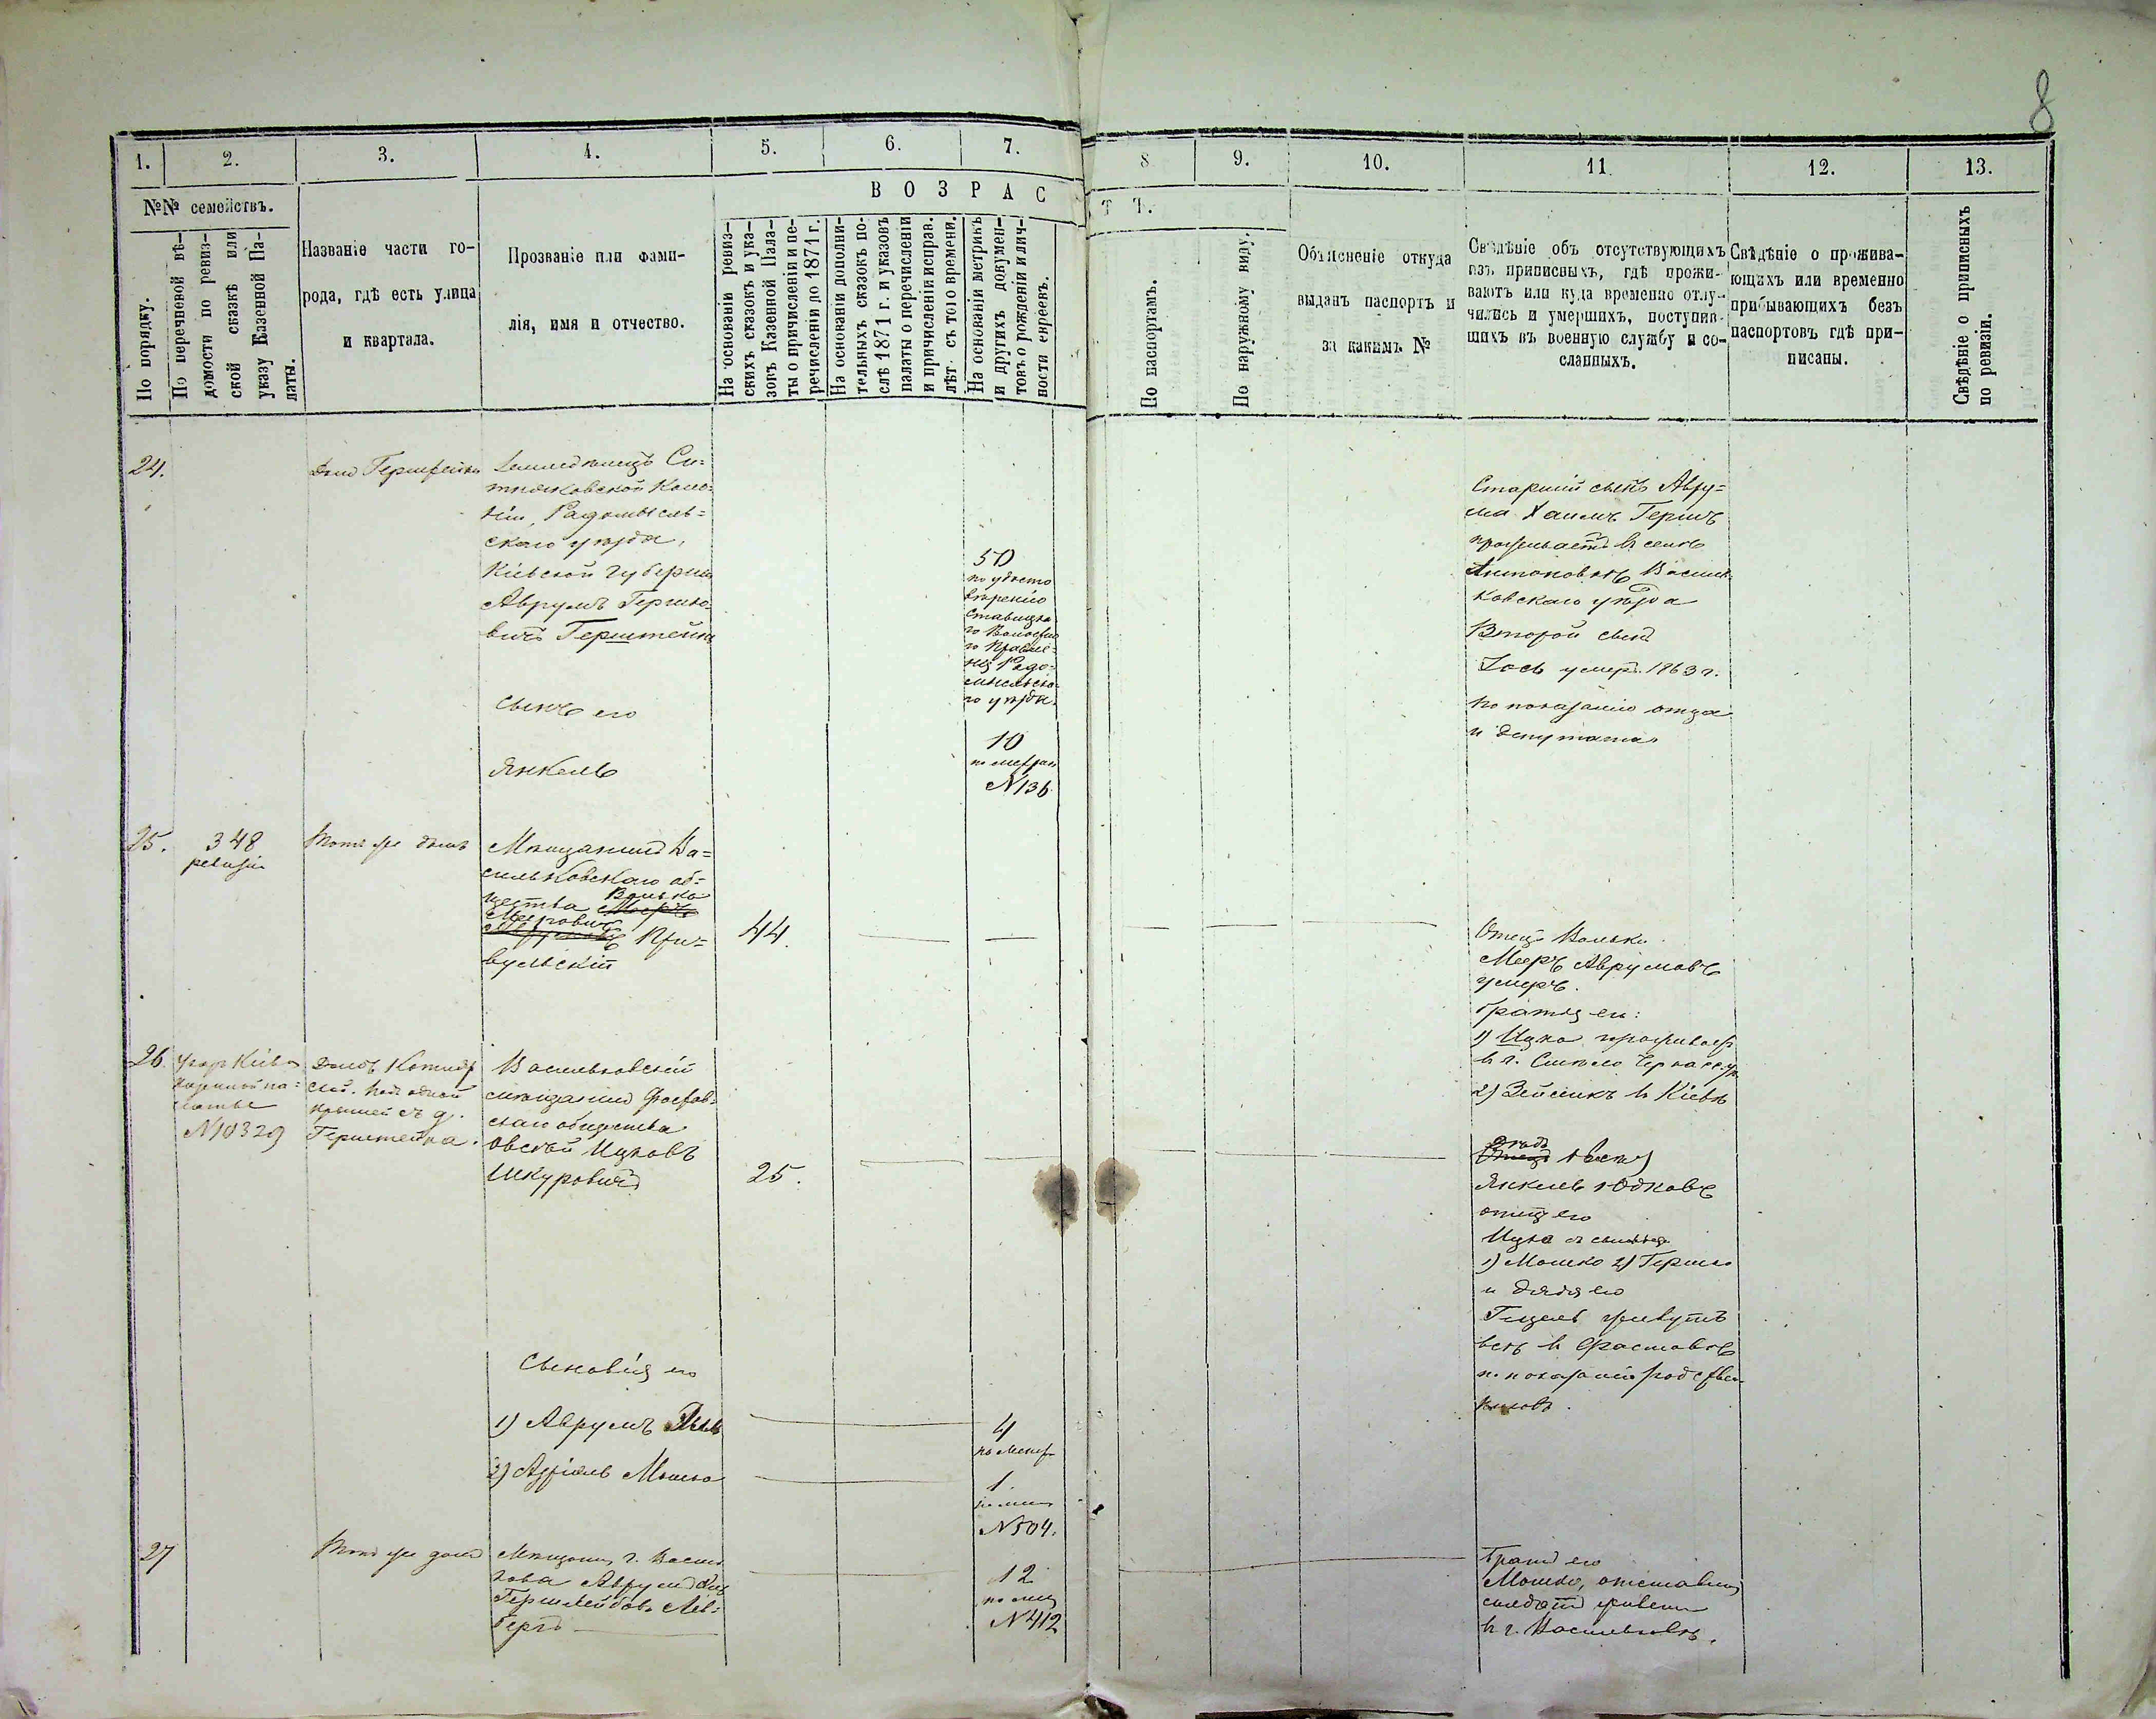 8
1.
2.
3.
4.
5.
6.
7.
8
9.
10.
11
12.
13.
В О З Р А С
Т Ъ.
№№ семействъ.
По порядку.
По перечневой вѣ-
домости по ревиз-
ской сказкѣ или
указу Казенной Па-
латы.
Названіе части го-
рода, гдѣ есть улица
и квартала.
Прозваніе или фами-
лія, имя и отчество.
На основаніи ревиз-
скихъ сказокъ и ука-
зовъ Казенной Пала-
ты о причисленіи и пе-
речисленіи до 1871 г.
На основаніи дополни-
тельныхъ сказокъ по-
слѣ 1871 г. и указовъ
палаты о перечисленіи
и причисленіи исправ.
лѣт. съ того времени.
На основаніи метрикъ
и другихъ докумен-
товъ о рожденіи и лич-
ности евреевъ.
По паспортамъ.
По наружному виду.
Объясненіе откуда
выданъ паспортъ и
за какимъ №
Свѣдѣніе объ отсутствующихъ
изъ приписныхъ, гдѣ прожи-
ваютъ или куда временно отлу-
чились и умершихъ, поступив-
шихъ въ военную службу и со-
сланныхъ.
Свѣдѣніе о прожива-
ющихъ или временно
прибывающихъ безъ
паспортовъ гдѣ при-
писаны.
Свѣдѣніе о приписныхъ
по ревизіи.
24.
Домъ Герштейна
Землепашецъ Си-
тняковской Коло-
ніи, Радомысль-
скаго уѣзда,
Кіевской Губерніи
Аврумъ Гершко-
вичъ Герштейнъ
сынъ его
Янкель
50
по удосто
вѣренію
Ставицка
го Волостна
го Правле-
нія Радо-
мысльска-
го уѣзда.
10
по метрик
№ 136
Старшій сынъ Авру-
ма Хаимъ Гершъ
проживаетъ въ селѣ
Антоновкѣ Василь
ковскаго уѣзда
Второй сынъ
Іось умеръ 1863 г.
по показанію отца
и депутата
25.
348
ревизіи
Тотъ же домъ
Мѣщанинъ Ва-
сильковскаго об-
щества Волько
Мееровичъ
При-
вульскій
44.
Отецъ Волька
Мееръ Аврумовъ
умеръ.
Братья его:
1) Ицко проживаетъ
въ м. Смѣло Черкас. у.
2) Зейликъ въ Кіевѣ
26
Указ Кіевс
казенной па-
латы
№ 10329
Домъ
подъ одной
крышей съ д.
Герштейна.
Васильковскій
мѣщанинъ Фастов-
скаго общества
Овсѣй Ицковъ
Шкуровичъ
25.
Дядя
Янкель Юдковъ
отецъ его
Ицко съ сыновья
1) Мошко 2) Гершко
и дядя его
живутъ
всѣ въ Фастовѣ
по показанію родствен
никовъ.
Сыновья его
1) Аврумъ
4
по метр
2) Азріель Мошко
1.
по мет
№ 504.
27
Тотъ же домъ
Мѣщанинъ г. Василь
кова Аврумъ
Гершлейбовъ
12
по мет
№ 412
Братъ его
Мошко, отставной
солдатъ живетъ
въ г. Васильковѣ.